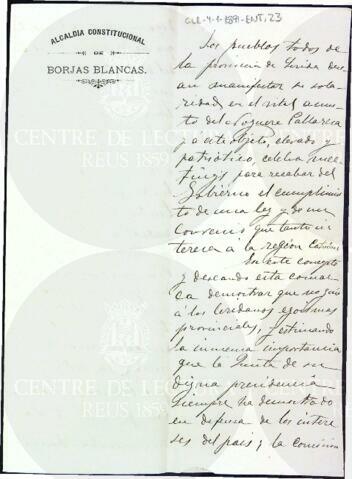 ALCALDIA CONSTITUCIONAL
DE
BORJAS BLANCAS.
CLR-4-1-1891-ENT, 23
Los pueblos todos de
la provincia de Lerida dese
an manifestar su sola
ridad en el vital asun
to del Noguera Pallaresa
y a este objeto, elevado y
patriótico, celebra mee
tings para recabar del
Gobierno el cumplimien
to de una ley y de un
Convenio que tanto in
teresa à la region
En este concepto
y deseando esta comar
ca demostrar que no guia
á los leridanos egoismos
provinciales, y estimando
la inmensa importancia
que la Junta de su
digna presidencia
siempre ha demostrado
en defensa de los intere
ses del pais; la Comision
CENTRE DE LECTURA
REUS 1859
CENTRE DE LECTURA
REUS 1859